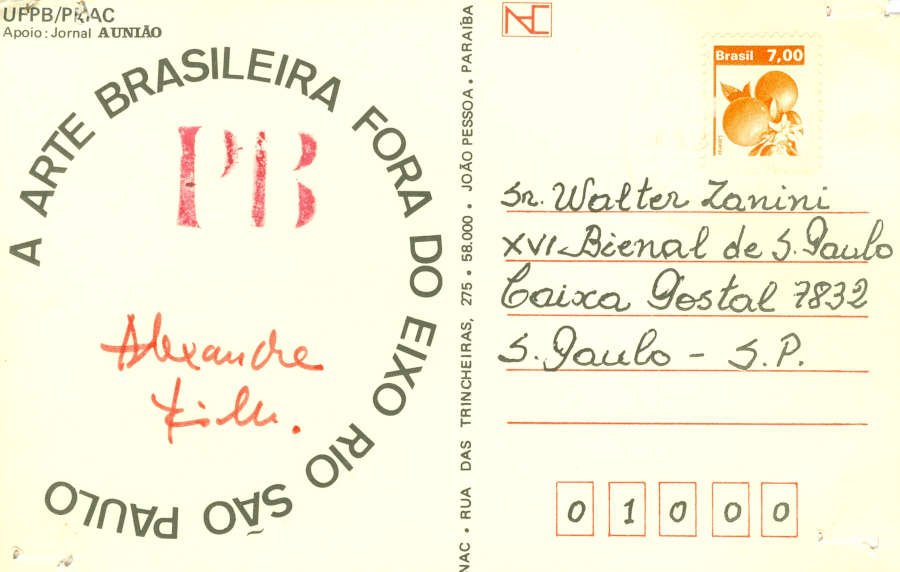 UFPB/PRAC
Apoio: Jornal A UNIÃO
A ARTE BRASILEIRA FORA DO EIXO RIO SÃO PAULO
PB
Alexandre
Filho.
NAC • RUA DAS TRINCHEIRAS, 275 • 58.000 • JOÃO PESSOA • PARAÍBA
NAC
Brasil 7,00
Sr. Walter Zanini
XVI-Bienal de S. Paulo
Caixa Postal 7832
S. Paulo - S.P.
0 1 0 0 0